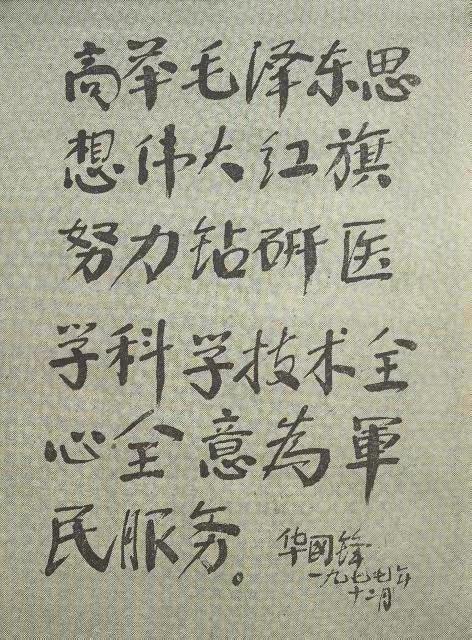 高举毛泽东思
想伟大红旗
努力钻研医
学科学技术全
心全意为軍
民服务。
华國锋
一九七七年
十二月